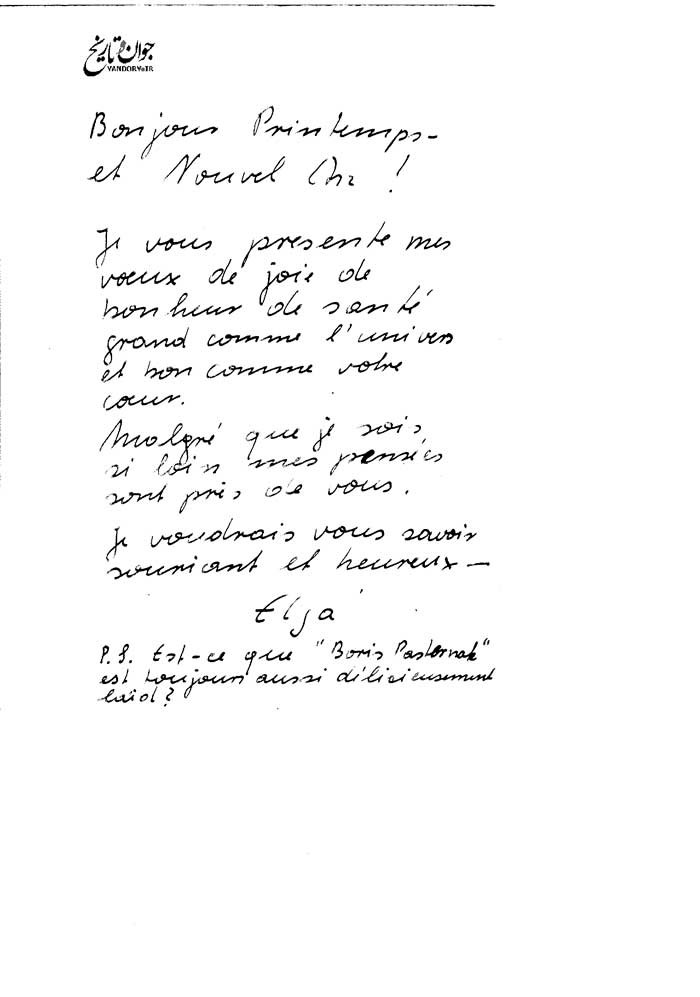 جوان و تاریخ
Bonjour Printemps -
et Nouvel An !
Je vous presente mes
vœux de joie de
bonheur de santé
grand comme l'univers
et bon comme votre
cœur.
Malgré que je sois
si loin mes pensées
sont près de vous.
Je voudrais vous savoir
souriant et heureux —
Elga
P.S. Est-ce que "Boris Pasternak"
est toujours aussi délicieusement
laid ?